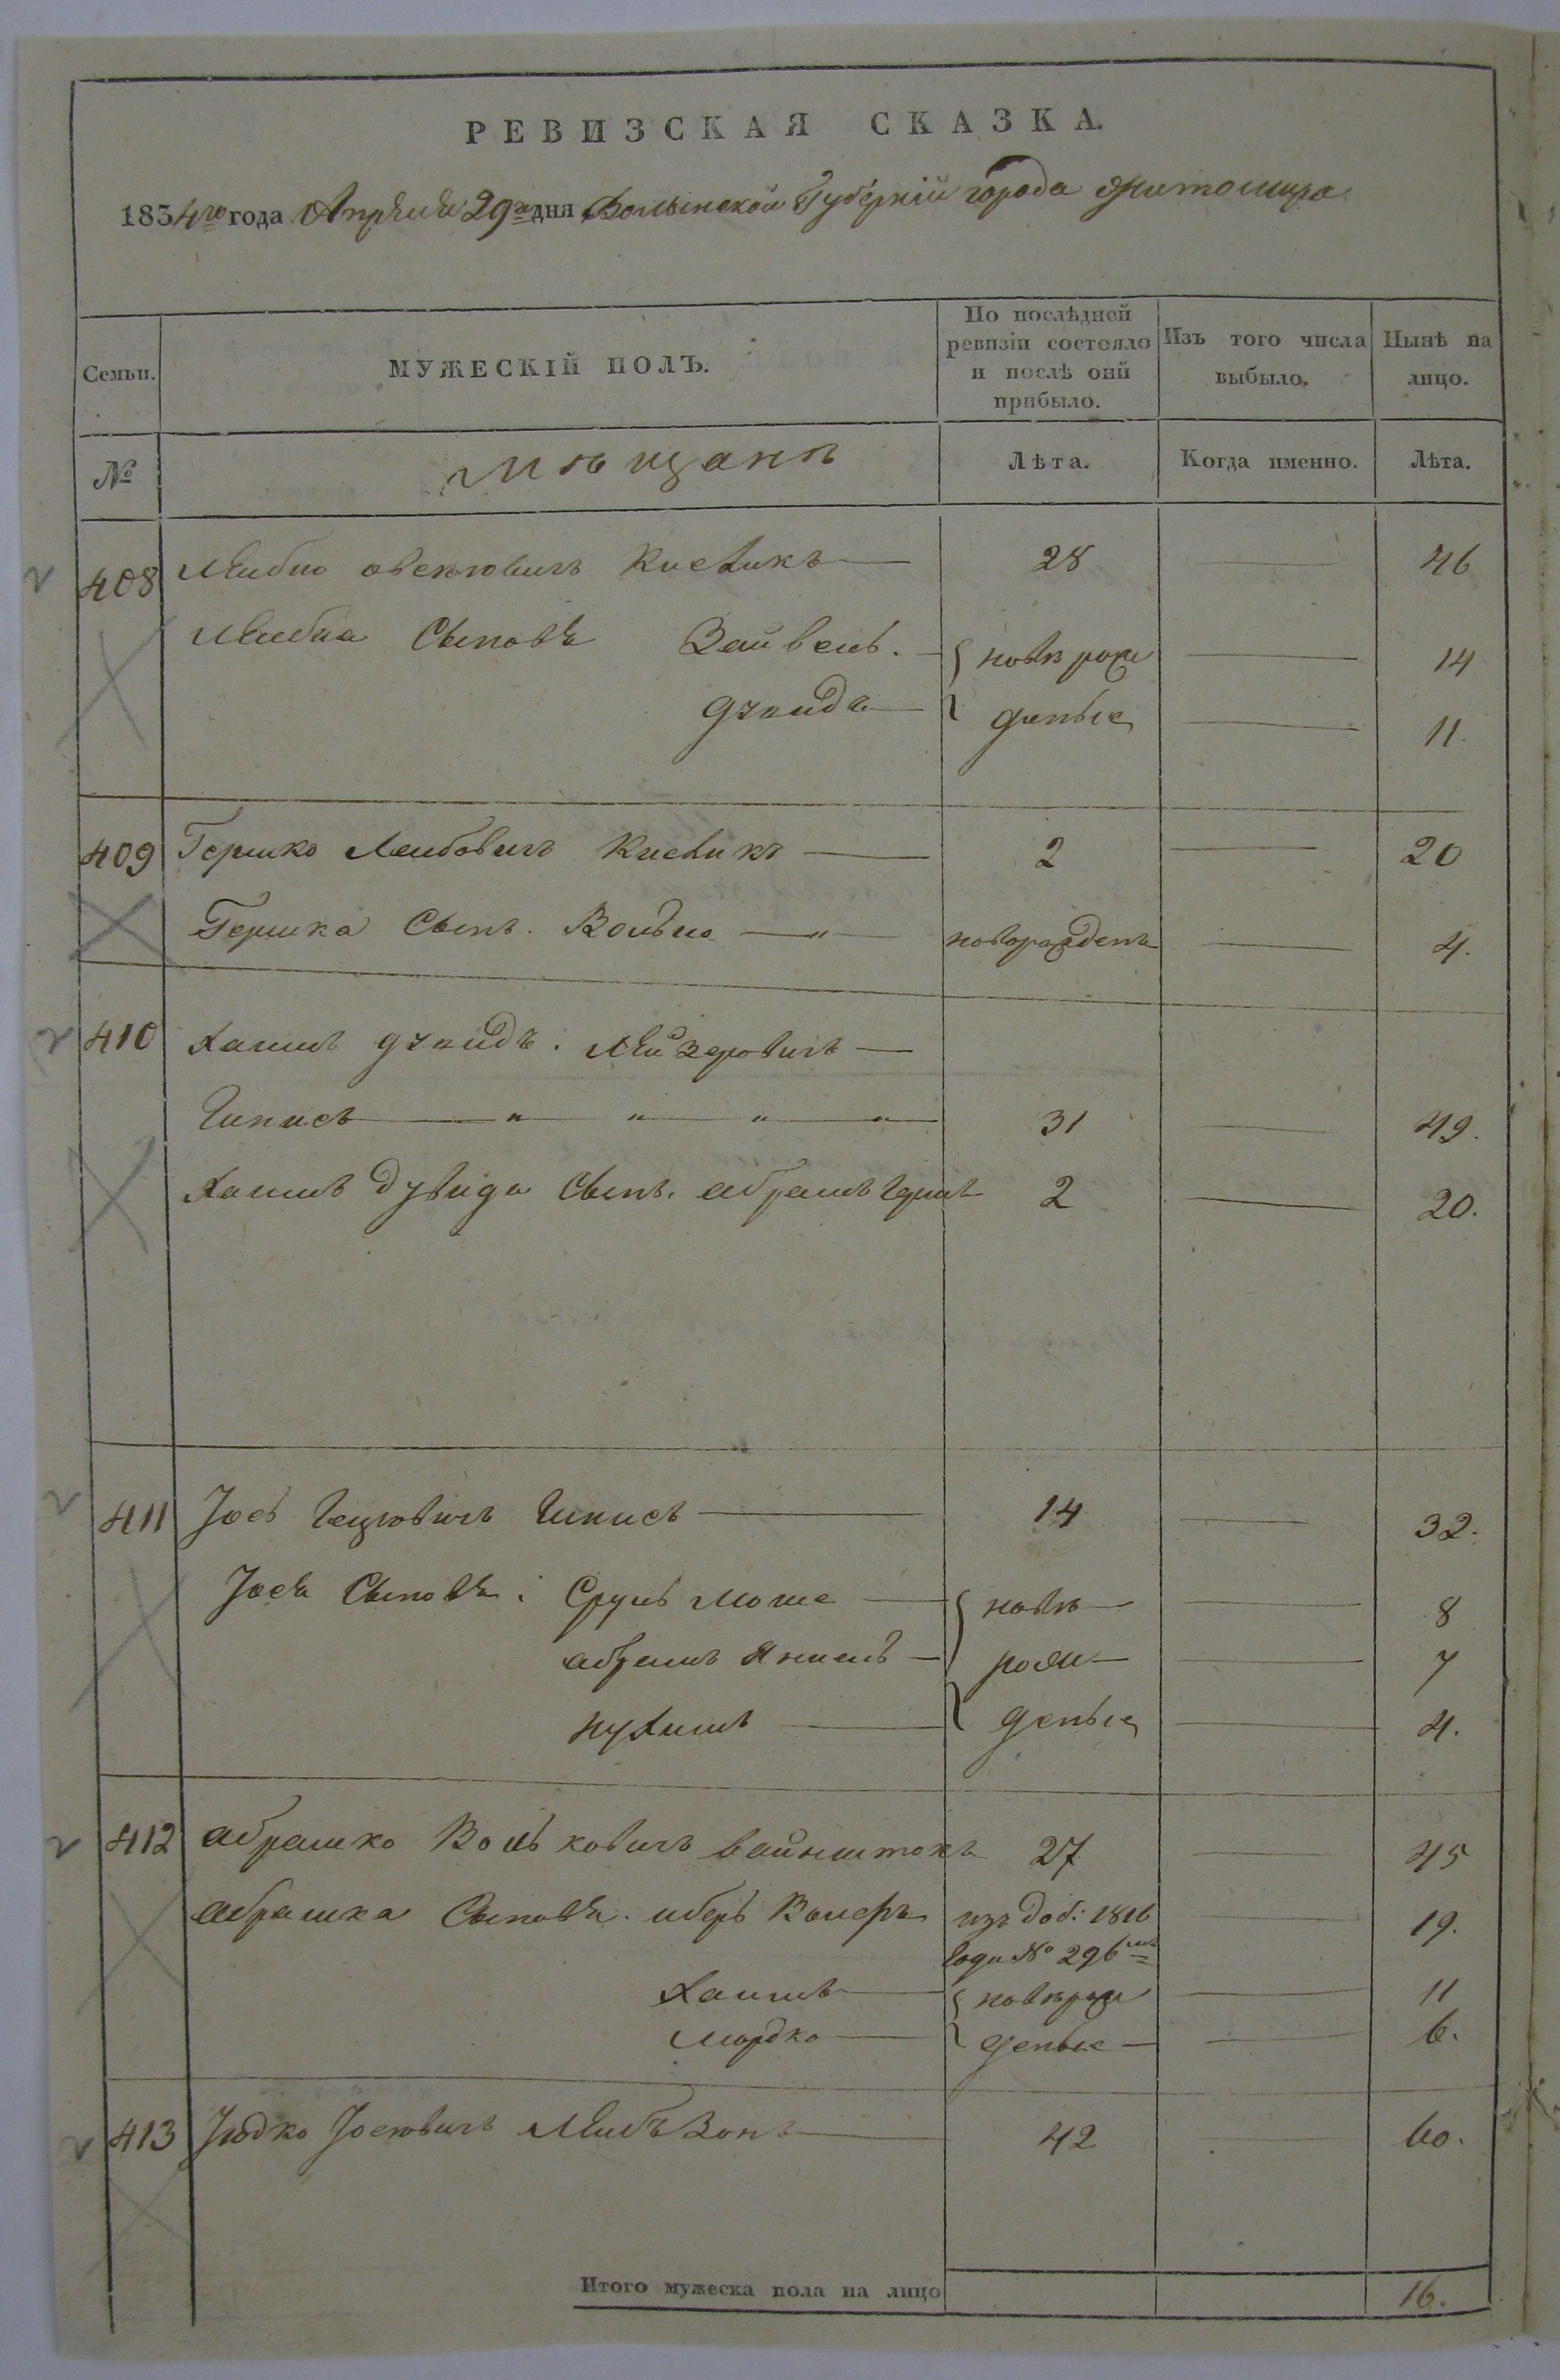 РЕВИЗСКАЯ СКАЗКА.
1834го года Апреля 29го дня Волынской Губерніи города Житомира
Семьи. МУЖЕСКІЙ ПОЛЪ. По послѣдней ревизіи состояло и послѣ оной прибыло. Изъ того числа выбыло. Нынѣ на лицо.
№ Мѣщанѣ Лѣта. Когда именно. Лѣта.
408 Лейбко Киевикъ — 28 — 46
Лейбка Сыновья Зайвель. — новорож — 14
Дувидъ — денные — 11.
409 Гершко Лейбовичъ Киевикъ — 2 — 20
Гершка Сынъ. Волько — новорожденъ — 4.
410 Хаимъ Дувидъ Лейзеровичъ —
Гиписъ — 31 — 49.
Хаимъ Дувида Сынъ. Абрамъ Герш 2 — 20.
411 Іосъ Гецковичъ Гиписъ — 14 — 32.
Іося Сыновья: Сруль Моше — ново — 8
Абрамъ Янкель — рож — 7
Нухимъ — денные — 4.
412 Абрашко Вольковичъ Вайнштокъ 27 — 45
Абрашка Сыновья. Иберъ Волеръ изъ доб: 1816 — 19.
года № 296мъ
Хаимъ — новорож — 11
Мордко — денные — 6.
413 Юдко Іосіовичъ Лейбзонъ — 42 — 60.
Итого мужеска пола на лицо 16.